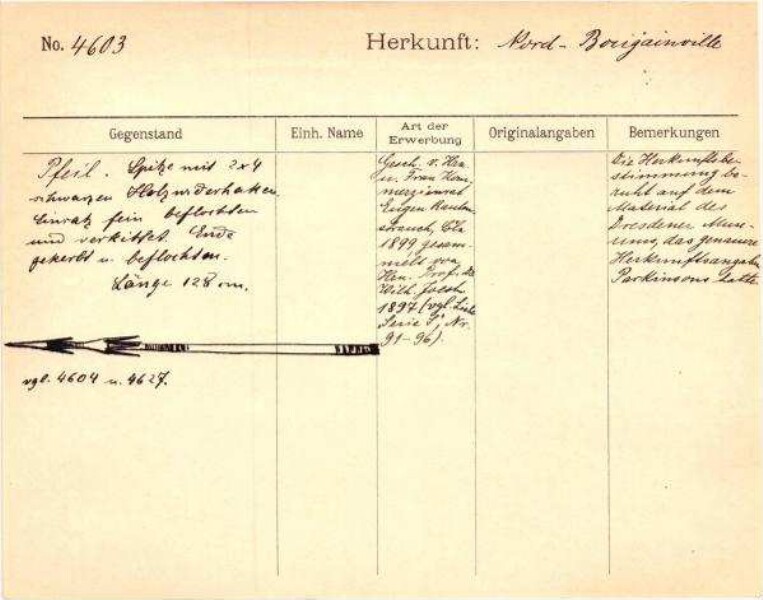 No. 4603
Herkunft: Nord-Bougainville
Gegenstand
Einh. Name
Art der Erwerbung
Originalangaben
Bemerkungen
Pfeil. Spitze mit 2x4
schwarzen Holzwiderhaken.
Einsatz fein beflochten
und verkittet. Ende
gekerbt u. beflochten.
Länge 128 cm.
vgl. 4604 u. 4627.
Gesch. v. Hrn.
u. Frau Kom-
merzienrat
Eugen Rauten-
strauch, Cöln
1899 gesam-
melt von
Hrn. Prof. Dr.
Wilh. Joest
1897 (vgl. Liste
Serie S, Nr.
91-96).
Die Herkunftsbe-
stimmung be-
ruht auf dem
Material des
Dresdener Muse-
ums, das genauere
Herkunftsangaben
Parkinsons hatte.